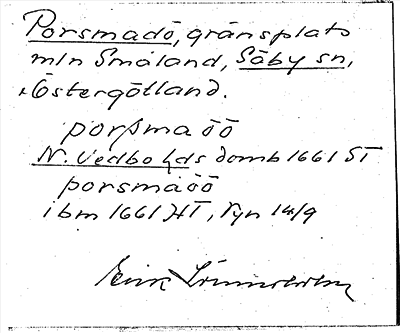 Porsmadö, gränsplats
mln Småland, Säby sn,
i Östergötland.
porßma öö
N. Vedbo hds domb 1661 ST
porsmaöö
ibm 1661 HT, ryn 14/9